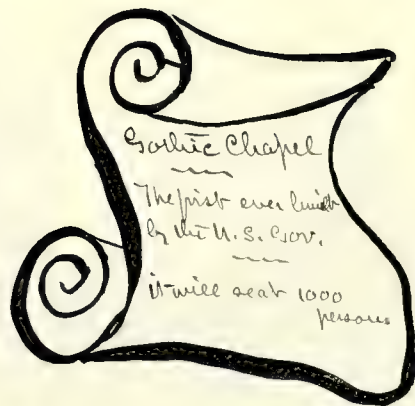 Gothic Chapel
The first ever built
by the U.S. Gov.
it will seat 1000
persons